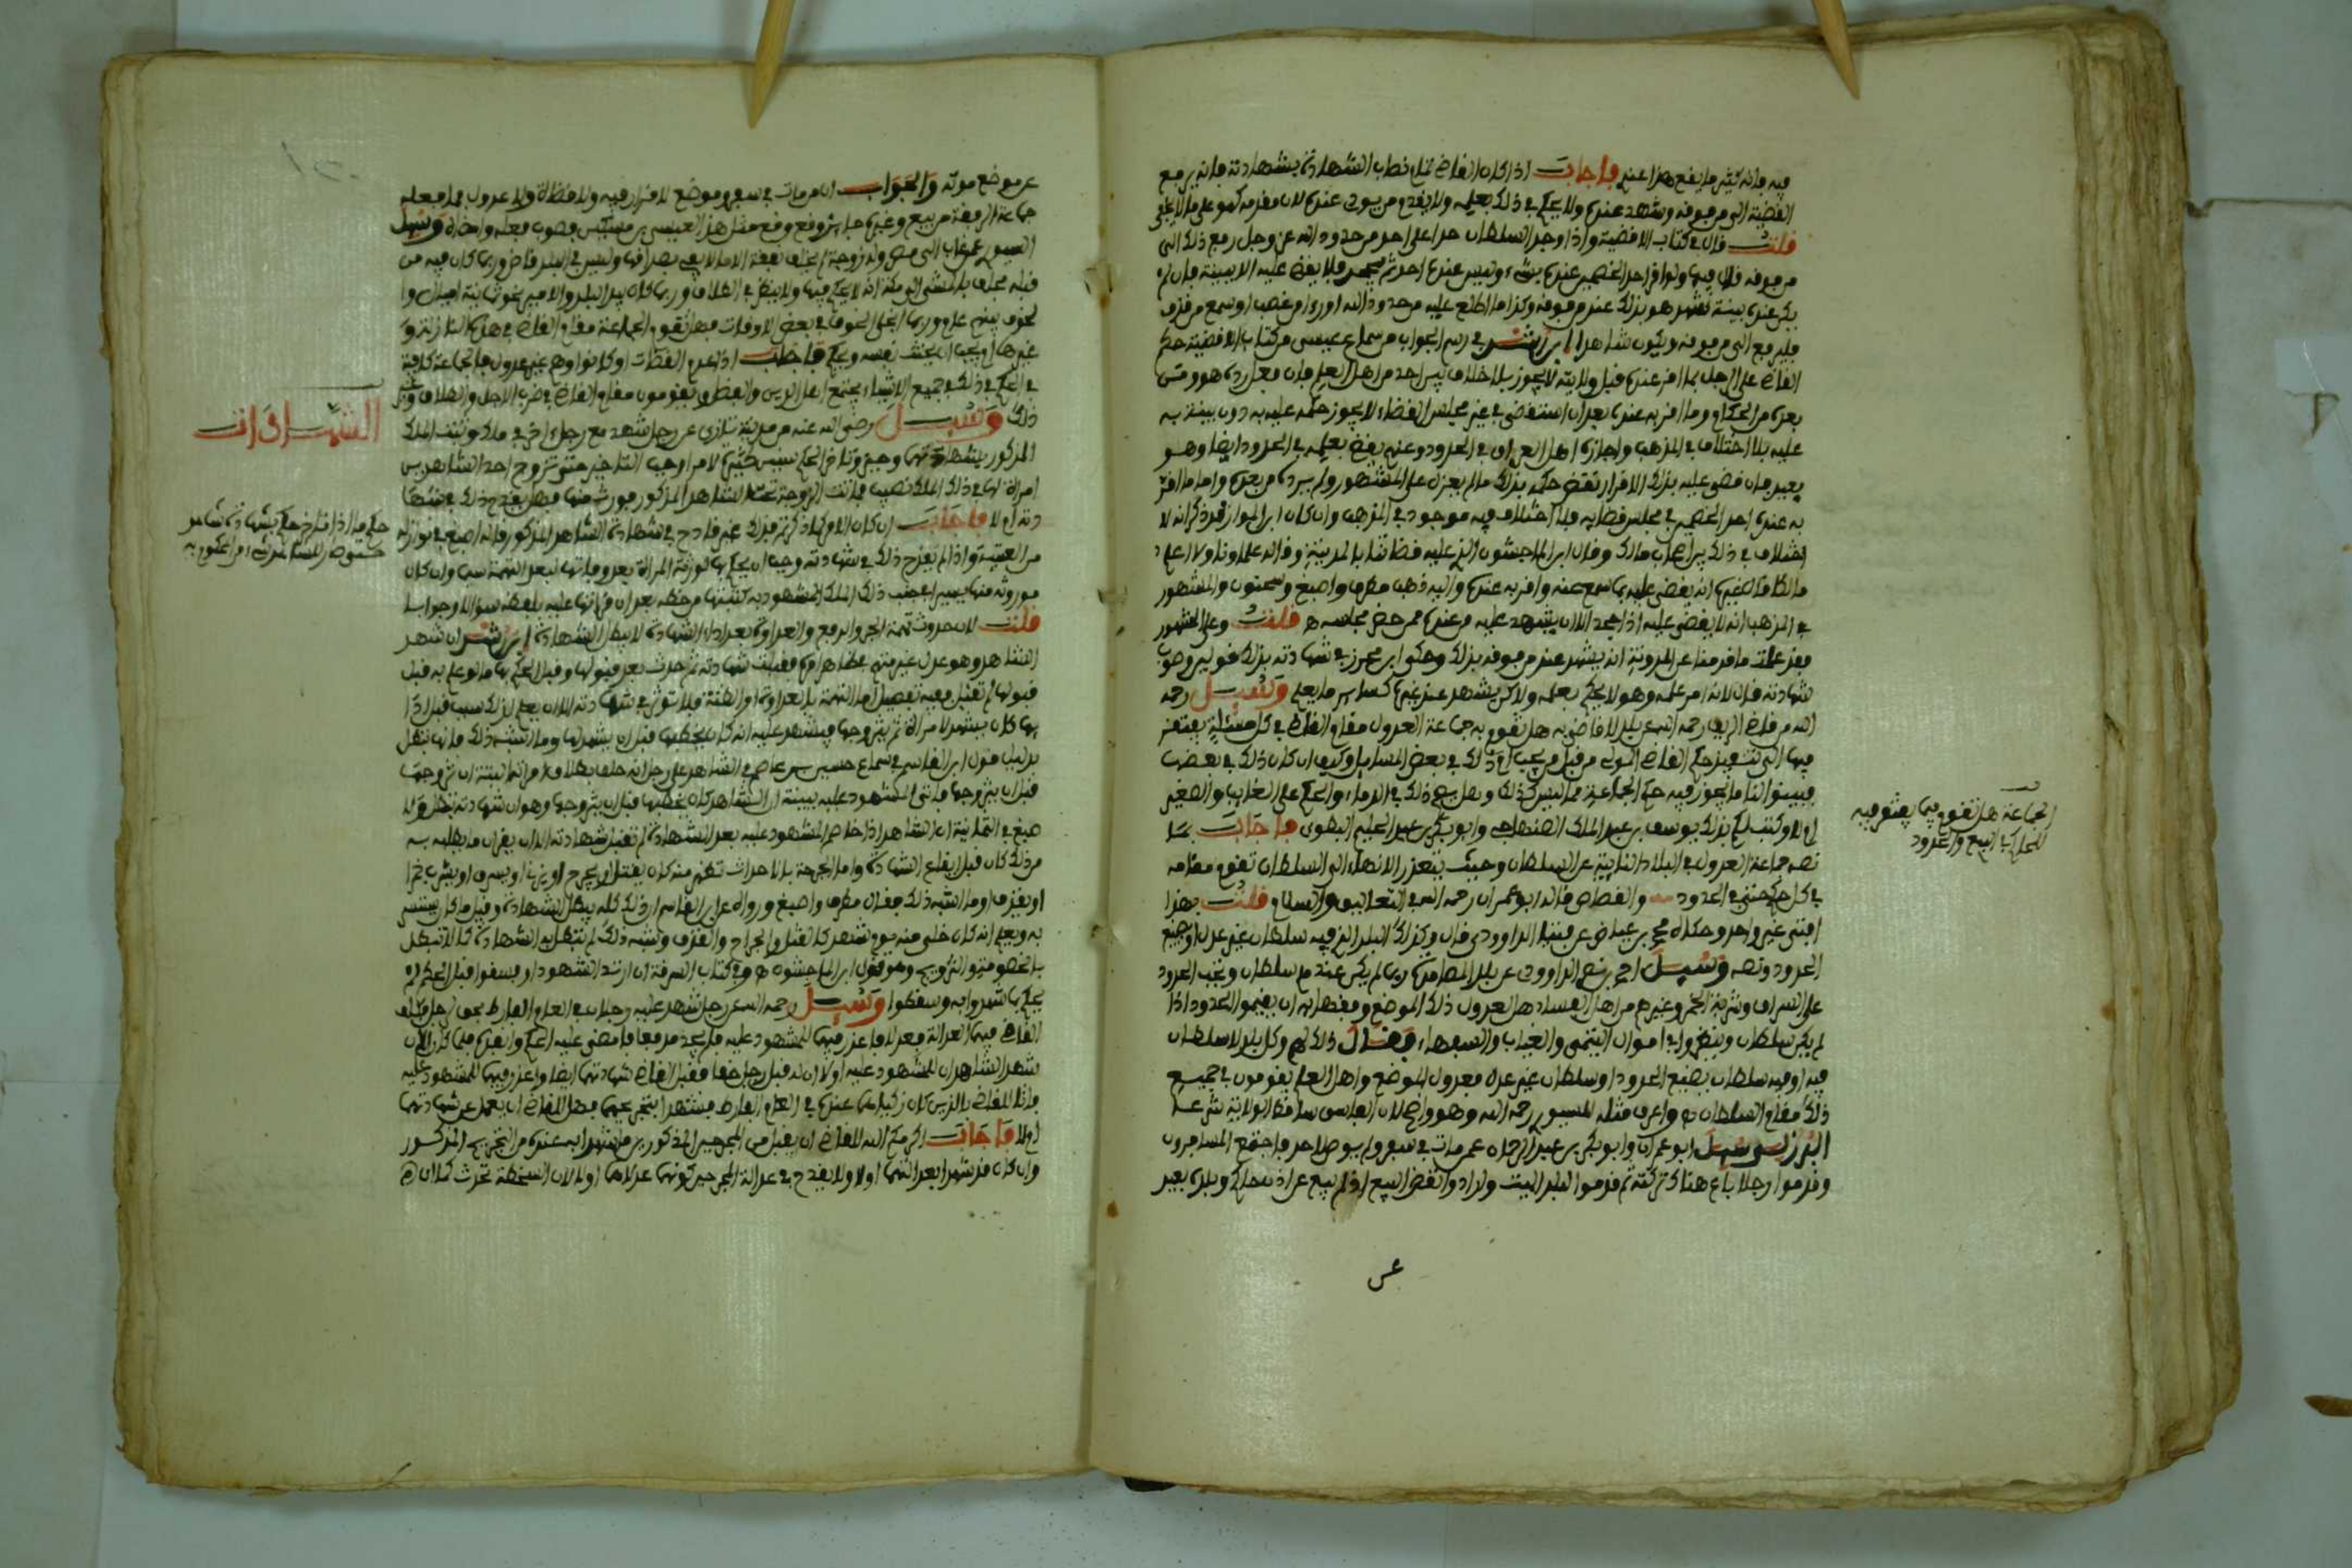 فيه فانه كثير ما يقع هذا عندي فاجاب اذا كان القاضي خطاب الشهادة بشهادته فانه يرفع
القضية الى من فوقه وشهد عنده ولا يحكم في ذلك بعلمه ولا
قلت قال في كتاب الاقضية واذا وجد السلطان حدا على احد من حدود الله عز وجل رفع ذلك الى
من فوقه قال فيها ولو اقر احد الخصمين عنده بشيء وليس عنده احد ثم يجحد فلا يقضي عليه الا ببينة فان لم
يكن عنده بينة شهد هو بذلك عند من فوقه وكذا ما اطلع عليه من حدود الله او رءا من غصب او سمع من قذف
فليرفع الى من فوقه ويكون شاهدا ابن رشد في رسم الجواب من سماع عيسى من كتاب الاقضية حكم
القاضي على الرجل بما اقر عنده قبل ولايته لا يجوز بلا خلاف بين احد من اهل العلم فان فعل رده هو ومن
بعده من الحكام وما اقر به عنده بعد ان استقضي في غير مجلس القضاء لا يجوز حكمه عليه به دون بينة به
عليه بلا اختلاف في المذهب واجازه اهل العراق في الحدود وغيره يقضي بعلمه في الحدود ايضا وهو
بعيد فان قضى عليه بذلك الاقرار نقض حكمه بذلك ما لم يعزل على المشهور ولم يرده من بعده واما ما اقر
به عنده احد الخصمين في مجلس قضايه فلا اختلاف فيه موجود في المذهب وان كان ابن المواز قد ذكر انه لا
اختلاف في ذلك بين اصحاب مالك وقال ابن الماجشون الذي عليه قضاتنا بالمدينة وقاله علماونا ولا اعلم
مالكا قال غيره انه يقضي عليه بما سمع منه واقر به عنده واليه ذهب مطرف واصبغ وسحنون والمشهور
في المذهب انه لا يقضي عليه اذا جحد الا ان يشهد عليه من عنده ممن حضر مجلسه قلت وعلى المشهور
فقد علمت ما قدمنا عن المدونة انه يشهد عند من فوقه بذلك وحكى ابن محرز في شهادته بذلك قولين وصوب
شهادته قال لانه امر علمه وهو لا يحكم بعلمه ولاكن يشهد عند غيره كساير ما يعلم وسيل رحمه
الله من قاضي الريف رحمه الله عن بلد لا قاضي به هل تقوم به جماعة العدول مقام القاضي في كل مسئلة يفتقر
فيها الى تنفيذ حكم القاضي المولى من قبل من يجب ام ذلك في بعض المسايل وكيف ان كان ذلك في بعضها
فبينوا لنا ما يجوز فيه حكم الجماعة مما ليس كذلك وهل يصح ذلك في الدماء والحكم على الغايب والصغير
ام لا وكتب لكم بذلك يوسف بن عبد الملك الصنهاجي وابو بكر بن عبد الحليم البهوي فاجاب بما
نصه جماعة العدول في البلاد النايية عن السلطان وحيث يتعذر الانهاء الى السلطان تقوم مقامه
في كل حكم حتى في الحدود والقصاص قاله ابو عمران رحمه الله في التعاليق والسلام قلت بهذا
افتى غير واحد وحكاه محمد بن عياض عن فتيا الداوودي قال وكذلك البلد الذي فيه سلطان غير عدل او يضيع
الحدود ونصه وسيل احمد بن نصر الداوودي عن بلد المصامدة ربما لم يكن عندهم سلطان وتجب الحدود
على السراق وشربة الخمر وغيرهم من اهل الفساد هل لعدول ذلك الموضع وفقهايه ان يقيموا الحدود اذا
لم يكن سلطان وينظروا في اموال اليتامى والغياب والسفهاء فقال ذلك لهم وكل بلد لا سلطان
فيه او فيه سلطان يضيع الحدود او سلطان غير عدل فعدول الموضع واهل العلم يقومون في جميع
ذلك مقام السلطان واعرف مثله للسيوري رحمه الله وهو واضح لان الفاسق ساقط الولاية شرعا
البرزلي وسيل ابو عمران وابو بكر بن عبد الرحمان عمن مات في سفر ولم يوص لاحد فاجتمع المسافرون
وقدموا رجلا باع هناك تركته ثم قدموا لبلد الميت وارادوا نقض البيع اذ لم يبع عن اذن حاكم وبلده بعيد
عن
الجماعة هل تقوم فيما يفتقر فيه
للحاكم البيع والحدود
عن موضع موته والجواب ان من مات في سفر وموضع لا قرار فيه ولا قضاة ولا عدول فما فعله
جماعة الرفقة من بيع وغيره جايز وقع وقع مثل هذا لعيسى بن مسكين فصوب فعله وامضاه وسيل
السيوري عمن غاب الى مصر وله زوجة لم يخلف نفقة الا ما لا يفي بصداقها وليس في البلد قاض وربما كان فيه من
غيرها ام يجب ان يخلف نفسه ويحكم فاجاب اذا عدم القضاة او كانوا وهم غير عدول فالجماعة كافية
في الحكم في ذلك في جميع الاشياء يجتمع اهل الدين والفضل ويقومون مقام القاضي في ضرب الاجل والطلاق وغير
ذلك وسيل رضي الله عنه من مدينة تازى عن رجل شهد مع رجل اخر في ملك وثبت الملك
المذكور بشهادتهما وحيز وتاخر الحكم سنين كثيرة لامر اوجب التاخير حتى تزوج احد الشاهدين
امراة لها في ذلك الملك نصيب فماتت الزوجة تحت الشاهد المذكور فورث منها فهل يقدح ذلك في شها
دته ام لا فاجاب ان كان الامر كما ذكرتم فذلك غير قادح في شهادة الشاهد المذكور قاله اصبغ في نوازله
من العتبية واذا لم يقدح ذلك في شهادته وجب ان يحكم بها لورثة المراة بعد وفاتها لبعد التهمة سيما وان كان
موروثه منها يسيرا في جنب ذلك الملك المشهود به
قلت لان حدوث تهمة الجر والدفع والعداوة بعد اداء الشهادة لا يبطل الشهادة ابن رشد ان شهد
الشاهد وهو عدل غير متهم بظاهر امره فقبلت شهادته ثم حدث بعد قبولها وقبل الحكم بها ما لو علم به قبل
قبولها لم تقبل ففيه تفصيل اما التهمة بالعداوة او الظنة فلا توثر في شهادته الا ان يعلم لذلك سبب قبل ادا
يها كان يشهد لامراة ثم يتزوجها فيشهد عليه انه كان يخطبها قبل ان يشهد لها وما اشبه ذلك فانها تبطل
بدليل قول ابن القاسم في سماع حسين بن عاصم في الشاهد على رجل انه حلف بطلاق امراته البتة ان تزوجها
قبل ان يتزوجها فاتى المشهود عليه ببينة ان الشاهد كان يخطبها قبل ان يتزوجها وهو ان شهادته تبطل
صبغ في الثمانية ان الشاهد اذا خاصم المشهود عليه بعد الشهادة لم تقبل شهادته الا ان يقر ان ما يطلبه به
من ذلك كان قبل ايقاع الشهادة واما الجرحة بالاحداث تظهر منه كان يقتل او يجرح او يزني او يسرق او يشرب خمرا
او يقذف او ما اشبه ذلك فقال مطرف واصبغ ورواه عن ابن القاسم ان ذلك كله يبطل الشهادة وقيل ما كان يستسر
به ويعلم انه كان خفي منه يوم شهد كالقتل والجراح والقذف وشبه ذلك لم تبطل به الشهادة كما لا تبطل
بالخصومة والتزويج وهو قول ابن الماجشون وفي كتاب السرقة ان ارتد الشهود او فسقوا قبل الحكم لم
يحكم بما شهدوا به وسقطوا وسيل رحمه الله عن رجل شهد عليه رجلان في العام الفارط بحق لرجل
القاضي فيهما العدالة فعدلا فاعذر فيهما للمشهود عليه فلم يجد مدفعا فامضى عليه الحكم وانفذه فلما كان الان
شهد الشاهدان للمشهود عليه اولا ان له قبل رجل حقا فقبل القاضي شهادتهما ايضا واعذر فيهما للمشهود عليه
فاتى للقاضي بالذين كان زكياهما عنده في العام الفارط فشهدا بتجريحهما فهل للقاضي ان يعمل عن شهادتهما
ام لا فاجاب اكرمكم الله للقاضي ان يقبل من المجرحين المذكورين ما شهدا به عنده من التجريح المذكور
وان كان قد شهدا بعدالتهما اولا ولا يقدح في عدالة المجرحين كونهما عدلاهما اولا لان السخطة تحدث
الشهادات
حكم ما اذا تاخر حكم بشهادة شاهد
حتى صار للشاهد